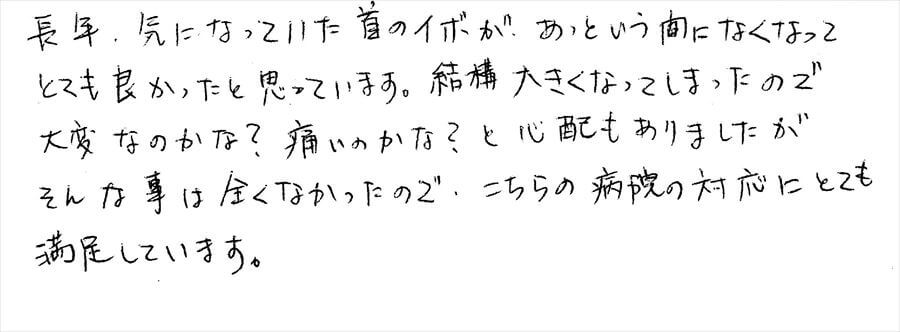 長年、気になっていた首のイボが、あっという間になくなって
とても良かったと思っています。結構大きくなってしまったので
大変なのかな？痛いのかな？と心配もありましたが
そんな事は全くなかったので、こちらの病院の対応にとても
満足しています。